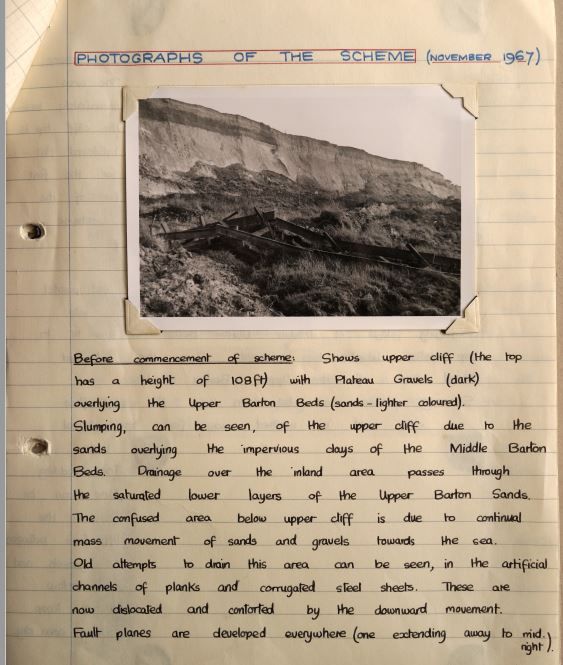 PHOTOGRAPHS OF THE SCHEME (NOVEMBER 1967)
Before commencement of scheme: Shows upper cliff (the top
has a height of 108ft) with Plateau Gravels (dark)
overlying the Upper Barton Beds (sands - lighter coloured).
Slumping, can be seen, of the upper cliff due to the
sands overlying the impervious clays of the Middle Barton
Beds. Drainage over the inland area passes through
the saturated lower layers of the Upper Barton Sands.
The confused area below upper cliff is due to continual
mass movement of sands and gravels towards the sea.
Old attempts to drain this area can be seen, in the artificial
channels of planks and corrugated steel sheets. These are
now dislocated and contorted by the downward movement.
Fault planes are developed everywhere (one extending away to mid.
right).